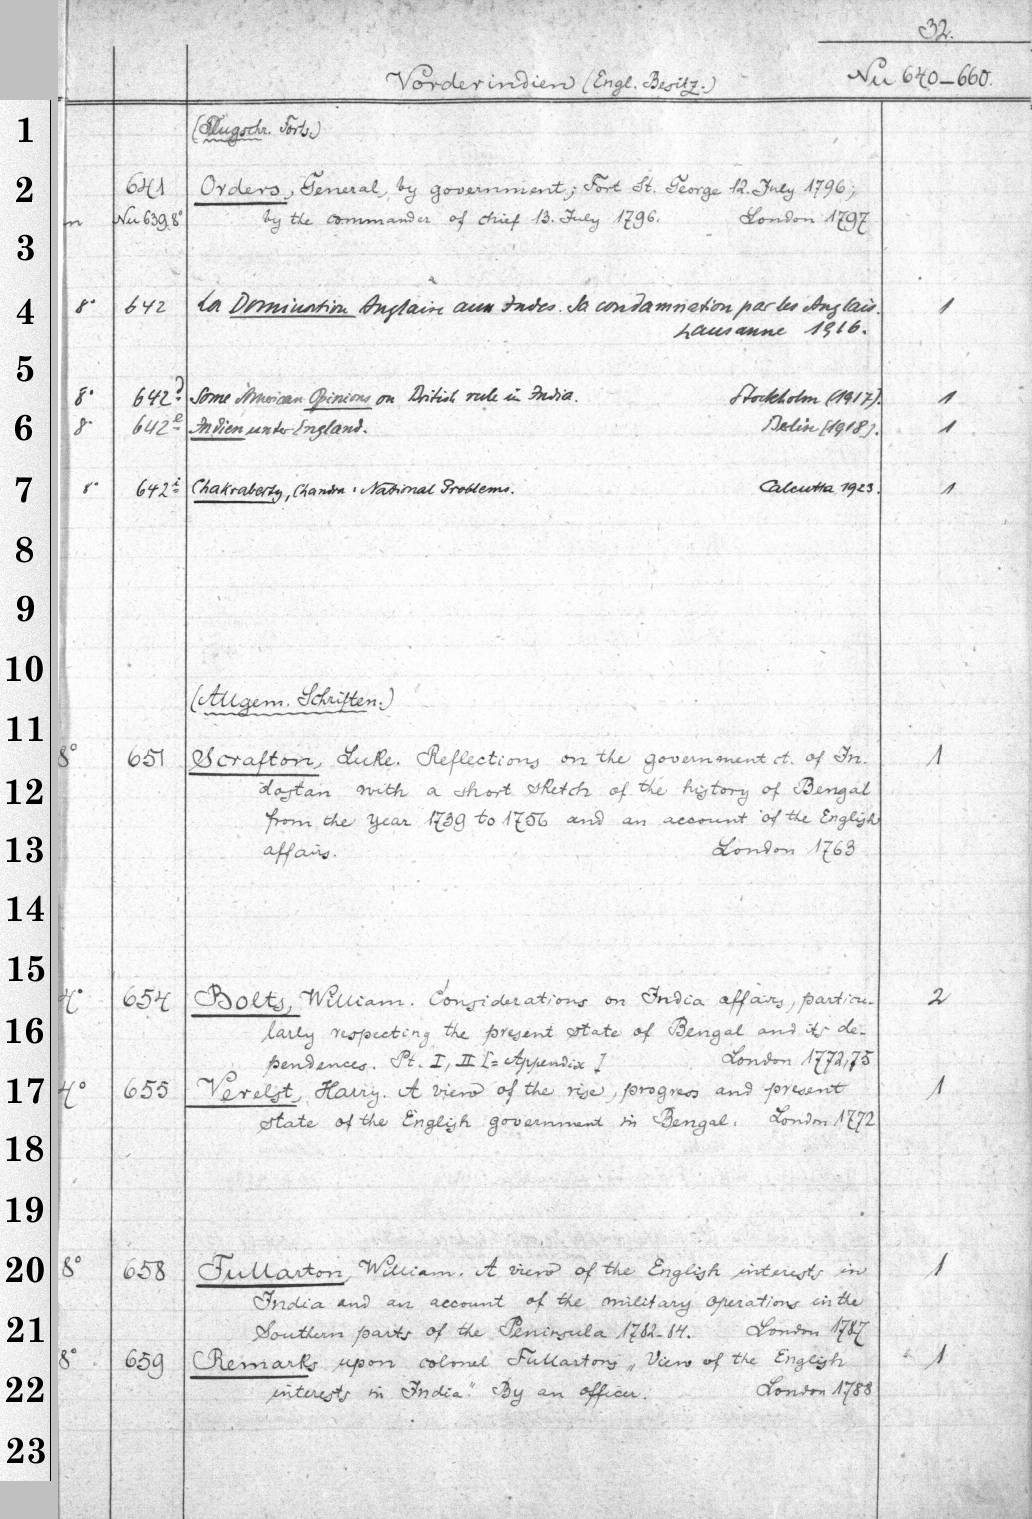 32.
Vorderindien (Engl. Besitz.) Nu 640-660.
1
(Flugschr. Forts.)
2 641 Orders, General, by government; Fort St. George 12. July 1796;
n Nu 639.8° by the commander of chief 13. July 1796. London 1797
3
4 8° 642 La Domination Anglaise aux Indes. Sa condamnation par les Anglais. 1
Lausanne 1916.
5
8° 642 d Some American Opinions on British rule in India. Stockholm (1917). 1
6 8° 642 e Indien unter England. Berlin [1918]. 1
7 8° 642 i Chakraberty, Chandra: National Problems. Calcutta 1923. 1
8
9
10
(Allgem. Schriften.)
11
8° 651 Scrafton, Luke. Reflections on the government ct. of In- 1
12 dostan with a short sketch of the history of Bengal
from the year 1739 to 1756 and an account of the English
13 affairs. London 1763
14
15
4° 654 Bolts, William. Considerations on India affairs, particu- 2
16 larly respecting the present state of Bengal and its de-
pendences. Pt. I, II [= Appendix] London 1772,75
17 4° 655 Verelst, Harry. A view of the rise, progress and present 1
state of the English government in Bengal. London 1772
18
19
20 8° 658 Fullarton, William. A view of the English interests in 1
India and an account of the military operations in the
21 Southern parts of the Peninsula 1782-84. London 1787
8° 659 Remarks upon colonel Fullartons „View of the English 1
22 interests in India" By an officer. London 1788
23